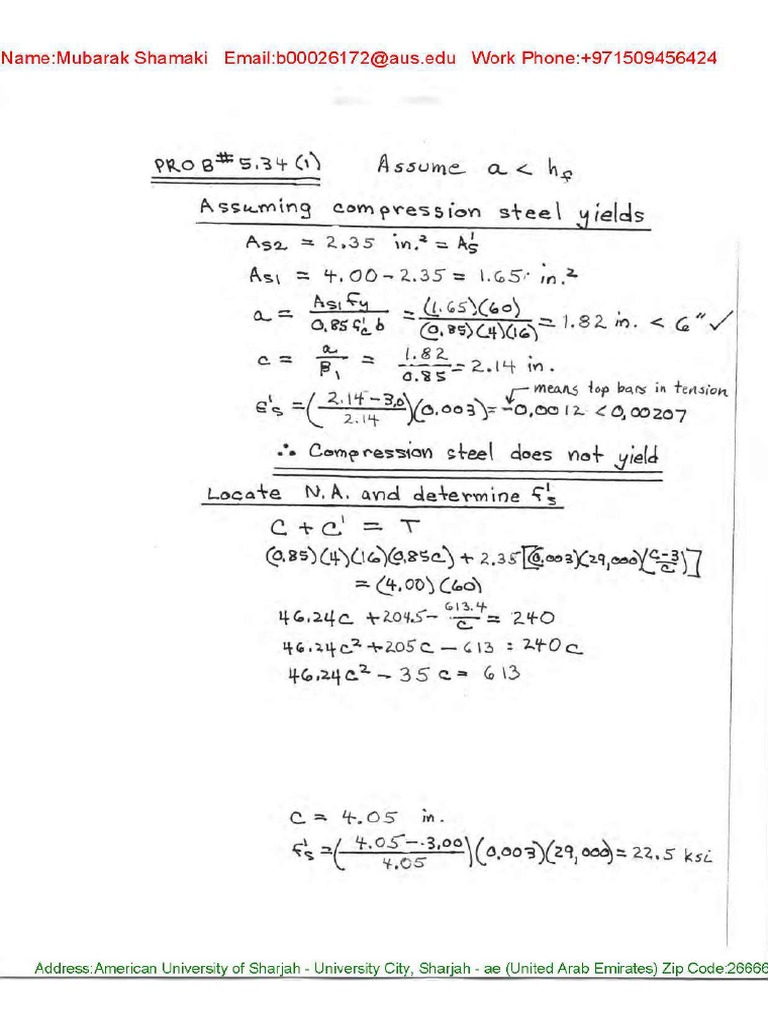 Name:Mubarak Shamaki   Email:b00026172@aus.edu   Work Phone:+971509456424
PROB# 5.34(1)   Assume a < hf
Assuming compression steel yields
As2 = 2.35 in.² = A's
As1 = 4.00 - 2.35 = 1.65 in.²
a = As1 fy / 0.85 f'c b = (1.65)(60) / (0.85)(4)(16) = 1.82 in. < 6" ✓
c = a / β1 = 1.82 / 0.85 = 2.14 in.
means top bars in tension
ε's = (2.14 - 3.0 / 2.14)(0.003) = -0.0012 < 0.00207
∴ Compression steel does not yield
Locate N.A. and determine f's
C + C' = T
(0.85)(4)(16)(0.85c) + 2.35[(0.003)(29,000)(c-3 / c)]
= (4.00)(60)
46.24c + 204.5 - 613.4 / c = 240
46.24c² + 205c - 613 = 240c
46.24c² - 35c = 613
c = 4.05 in.
f's = (4.05 - 3.00 / 4.05)(0.003)(29,000) = 22.5 ksi
Address:American University of Sharjah - University City, Sharjah - ae (United Arab Emirates) Zip Code:26666